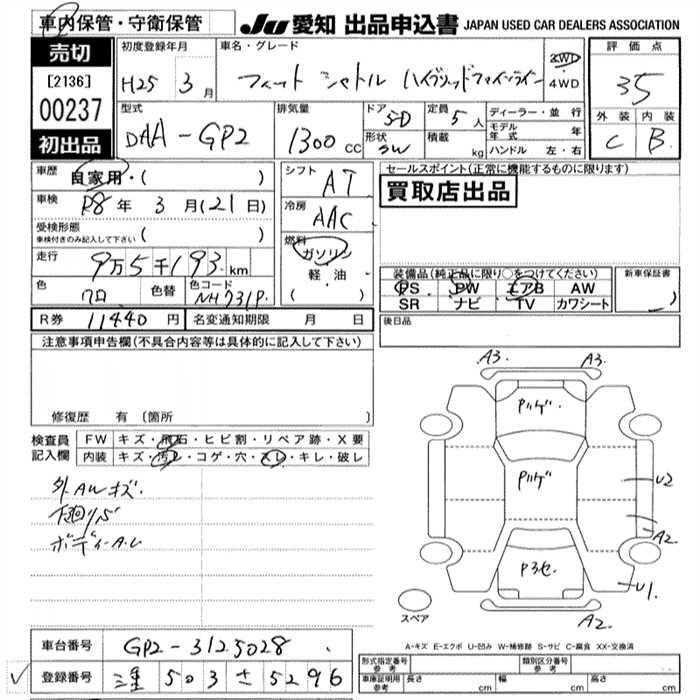 車内保管・守衛保管
JU 愛知 出品申込書 JAPAN USED CAR DEALERS ASSOCIATION
売切
[2136]
00237
初出品
初度登録年月
H25 3月
車名・グレード
フィット シャトル ハイブリッドファインライン
2WD
4WD
型式
DAA-GP2
排気量
1300cc
ドア
5D
形状
SW
定員
5人
積載
kg
ディーラー・並行
モデル年式 年
ハンドル 左・右
評価点
3.5
外装 内装
C B
車歴
自家用・( )
車検
R8年 3月(21日)
受検形態
車検付きのみ記入して下さい ( )
走行
9万5千193km
色
クロ
色替
色コード
NH731P
シフト
AT
冷房
AAC
燃料
ガソリン
軽・油
( ・ )
セールスポイント(正常に機能するものに限ります)
買取店出品
装備品(純正品に限り○をつけてください)
PS PW エアB AW
SR ナビ TV カワシート
新車保証書
後日品
R券 11440円 名変通知期限 月 日
注意事項申告欄(不具合内容等は具体的に記入して下さい)
修復歴 有(箇所
検査員
記入欄
FW キズ・飛石・ヒビ割・リペア跡・X要
内装 キズ・汚レ・コゲ・穴・スレ・キレ・破レ
外AWキズ.
下廻りS
ボディーA.U
A3. A3.
Pハゲ.
Pハゲ
U2
A2
P3セ.
U1.
スペア
A2.
A-キズ E-エクボ U-凹み W-補修跡 S-サビ C-腐食 XX-交換済
車台番号 GP2-3125028
登録番号 三重 503 さ 5296
形式指定番号 参考
類別区分番号 参考
車庫証明用 参考 長さ cm 幅 cm 高さ cm